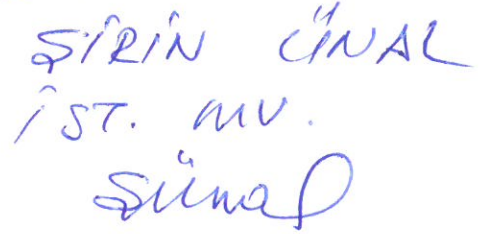 ŞİRİN ÜNAL
İST. MV.
Şünal